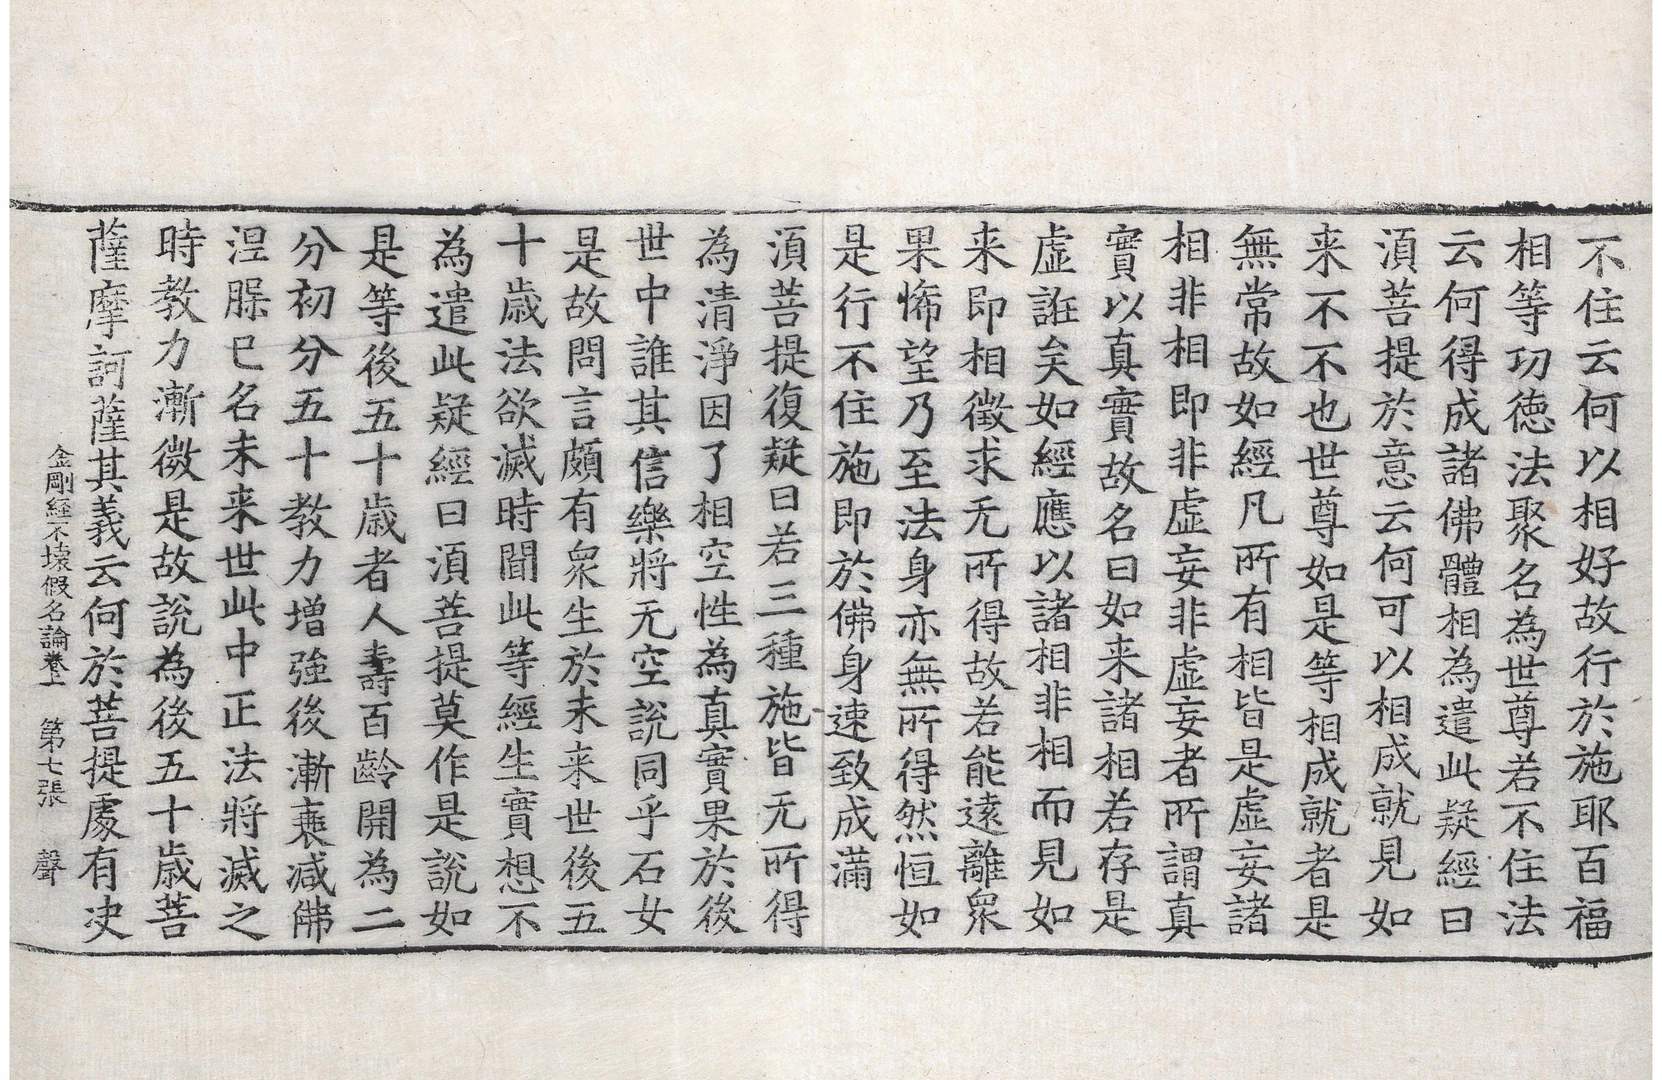 不住云何以相好故行於施耶百福
相等功徳法聚名為世尊若不住法
云何得成諸佛體相為遣此疑經曰
湏菩提於意云何可以相成就見如
来不不也世尊如是等相成就者是
無常故如經凡所有相皆是虚妄諸
相非相即非虚妄非虚妄者所謂真
實以真實故名曰如来諸相若存是
虚誑矣如經應以諸相非相而見如
来即相徵求无所得故若能遠離衆
果怖望乃至法身亦無所得然恒如
是行不住施即於佛身速致成滿
湏菩提復疑曰若三種施皆无所得
為清淨因了相空性為真實果於後
世中誰其信樂將无空說同乎石女
是故問言頗有衆生於未来世後五
十歳法欲滅時聞此等經生實想不
為遣此疑經曰湏菩提莫作是說如
是等後五十歳者人壽百齡開為二
分初分五十教力增強後漸衰減佛
涅脲已名未来世此中正法將滅之
時教力漸微是故說為後五十歳菩
薩摩訶薩其義云何於菩提處有决
金剛經不壊假名論卷上 第七張 聲